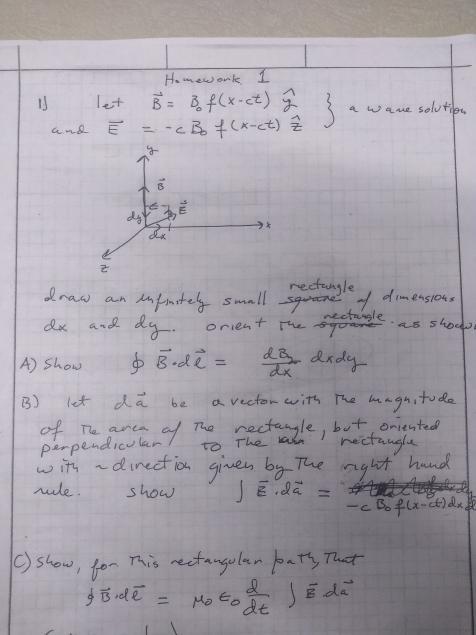 Homework 1
1) let B⃗ = B₀ f(x-ct) ŷ } a wave solution
and E⃗ = -c B₀ f(x-ct) ẑ
y
B⃗
E⃗
dy
dx
x
z
rectangle
draw an infinitely small square of dimensions
rectangle
dx and dy. orient the square as shown
A) Show ∮ B⃗·dl⃗ = dB_y/dx dxdy
B) let da⃗ be a vector with the magnitude
of the area of the rectangle, but oriented
perpendicular to the rectangle
with a direction given by the right hand
rule. show ∫ E⃗·da⃗ =
-c B₀ f(x-ct) dx d
C) Show, for this rectangular path, that
∮ B⃗·dl⃗ = μ₀ ε₀ d/dt ∫ E⃗·da⃗